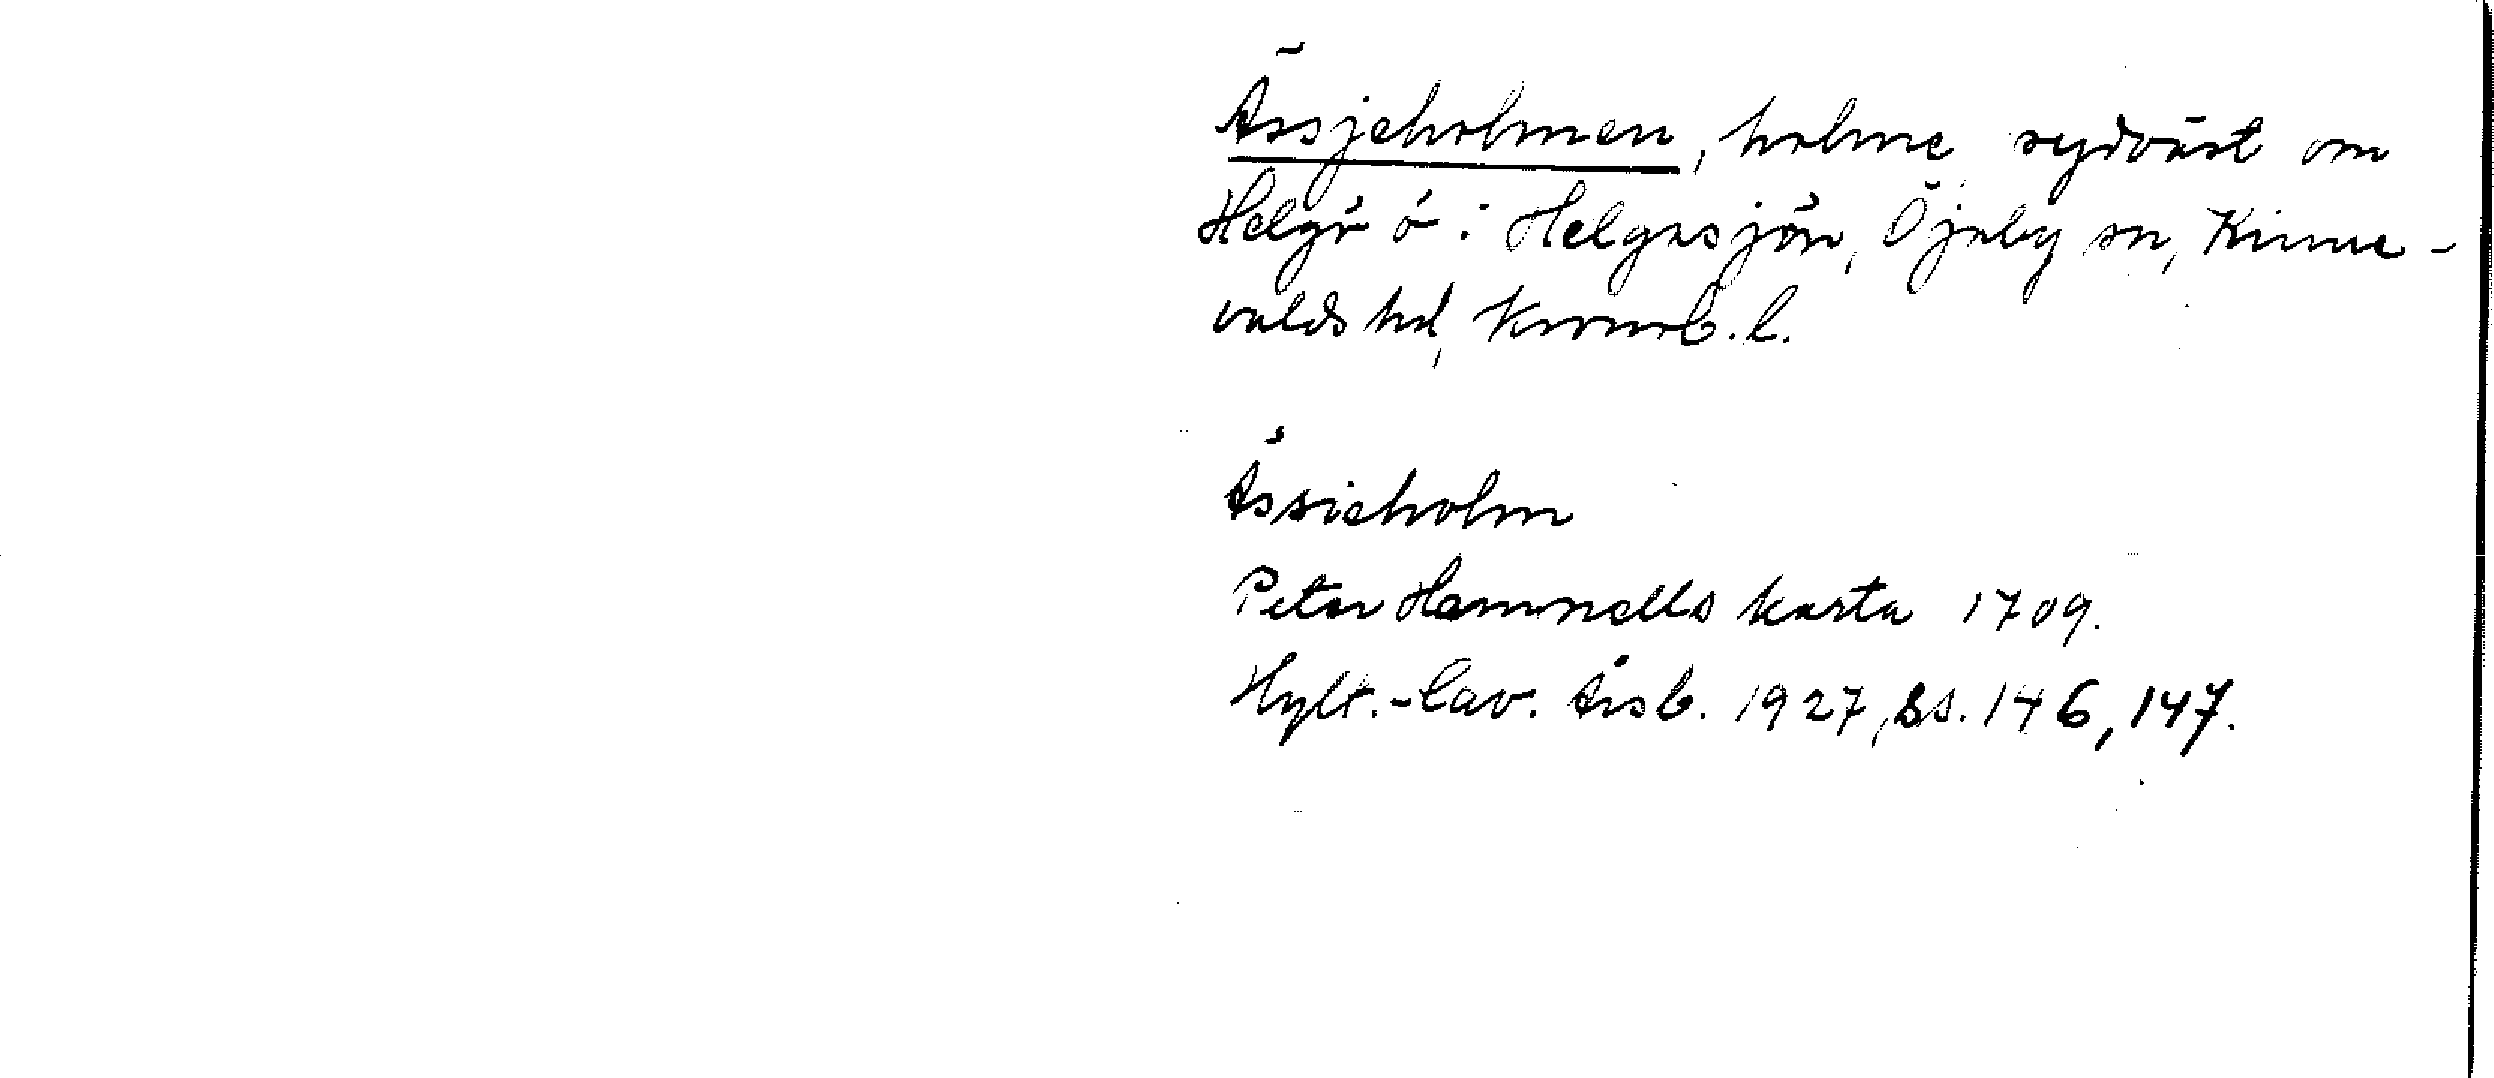 Ässjeholmen, holme sydväst om
Helgö ö i Helgasjön, Öjaby sn, Kinne-
valds hd, Kronob. l.
Ässieholm
Peter Hamnells karta 1709.
Hylt.-Cav. Årsb. 1927, ss. 146, 147.